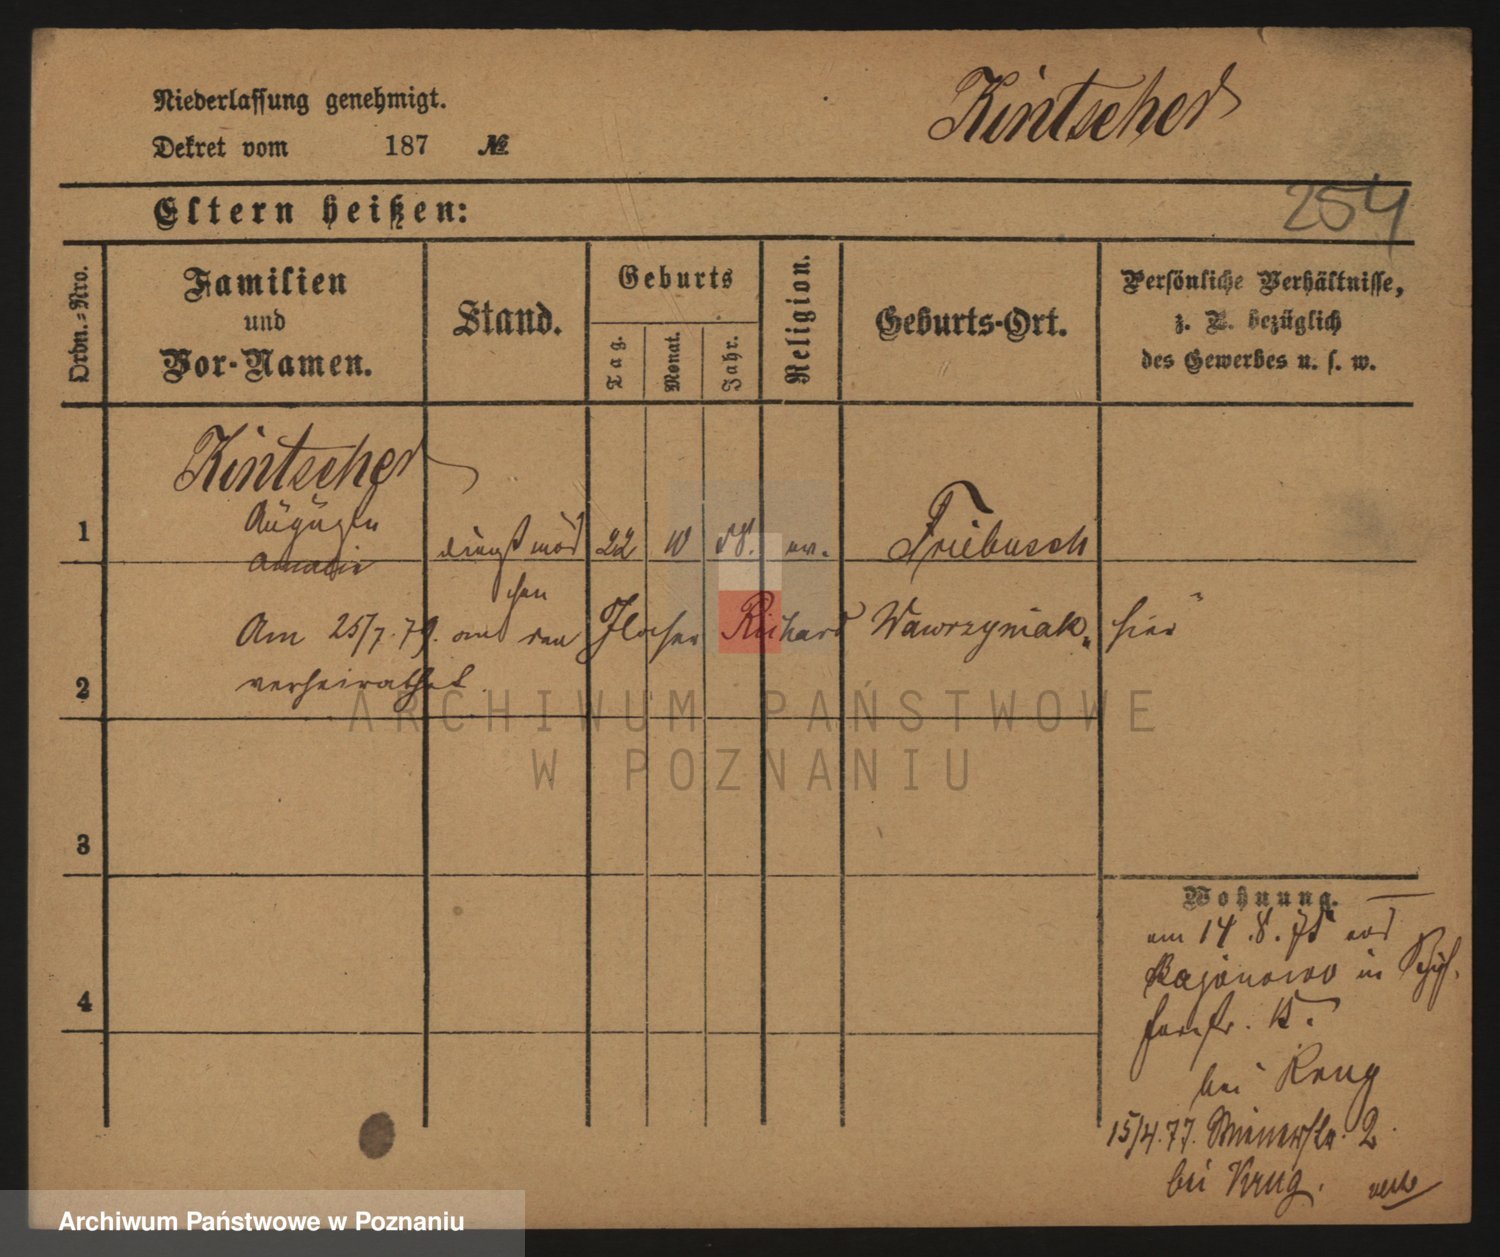 Niederlassung genehmigt.
Dekret vom 187 №
Kintscher
254
Eltern heißen:
Ordn.-Nro.
Familien
und
Vor-Namen.
Stand.
Geburts
Tag.
Monat.
Jahr.
Religion.
Geburts-Ort.
Persönliche Verhältnisse,
z. B. bezüglich
des Gewerbes u. s. w.
Kintscher
1 dienstmäd 22 10 58. ev. Triebusch
chen
Am 25/7. 79. an den Richard Wawrzyniak, hier
2 verheirathet.
3
4
Wohnung.
am 14.8.75 aus
in
15.
bei Krug
15/4.77. 2.
bei Krug.
ARCHIWUM PAŃSTWOWE
W POZNANIU
Archiwum Państwowe w Poznaniu